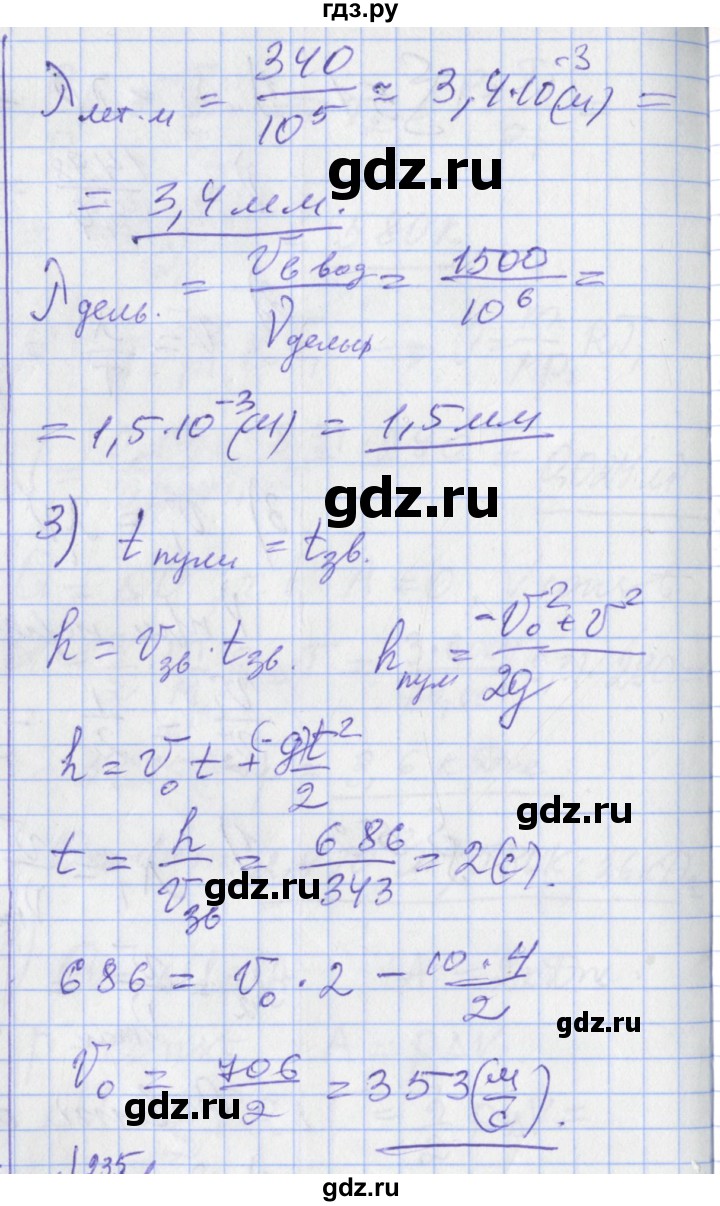 гдз.ру
λ лет.м = 340/10⁵ ≈ 3,4·10⁻³(м) =
gdz.ru
= 3,4 мм.
λ дель. = v в вод/ν дельф = 1500/10⁶ =
= 1,5·10⁻³(м) = 1,5 мм
gdz.ru
3) t пули = t зв.
h = v зв · t зв. h пул = -v₀² + v²/2g
h = v₀t + (-g)t²/2
gdz.ru
t = h/v зв = 686/343 = 2(с).
gdz.ru
686 = v₀ · 2 - 10·4/2
gdz.ru
v₀ = 706/2 = 353(м/с).
gdz.ru
235
gdz.ru